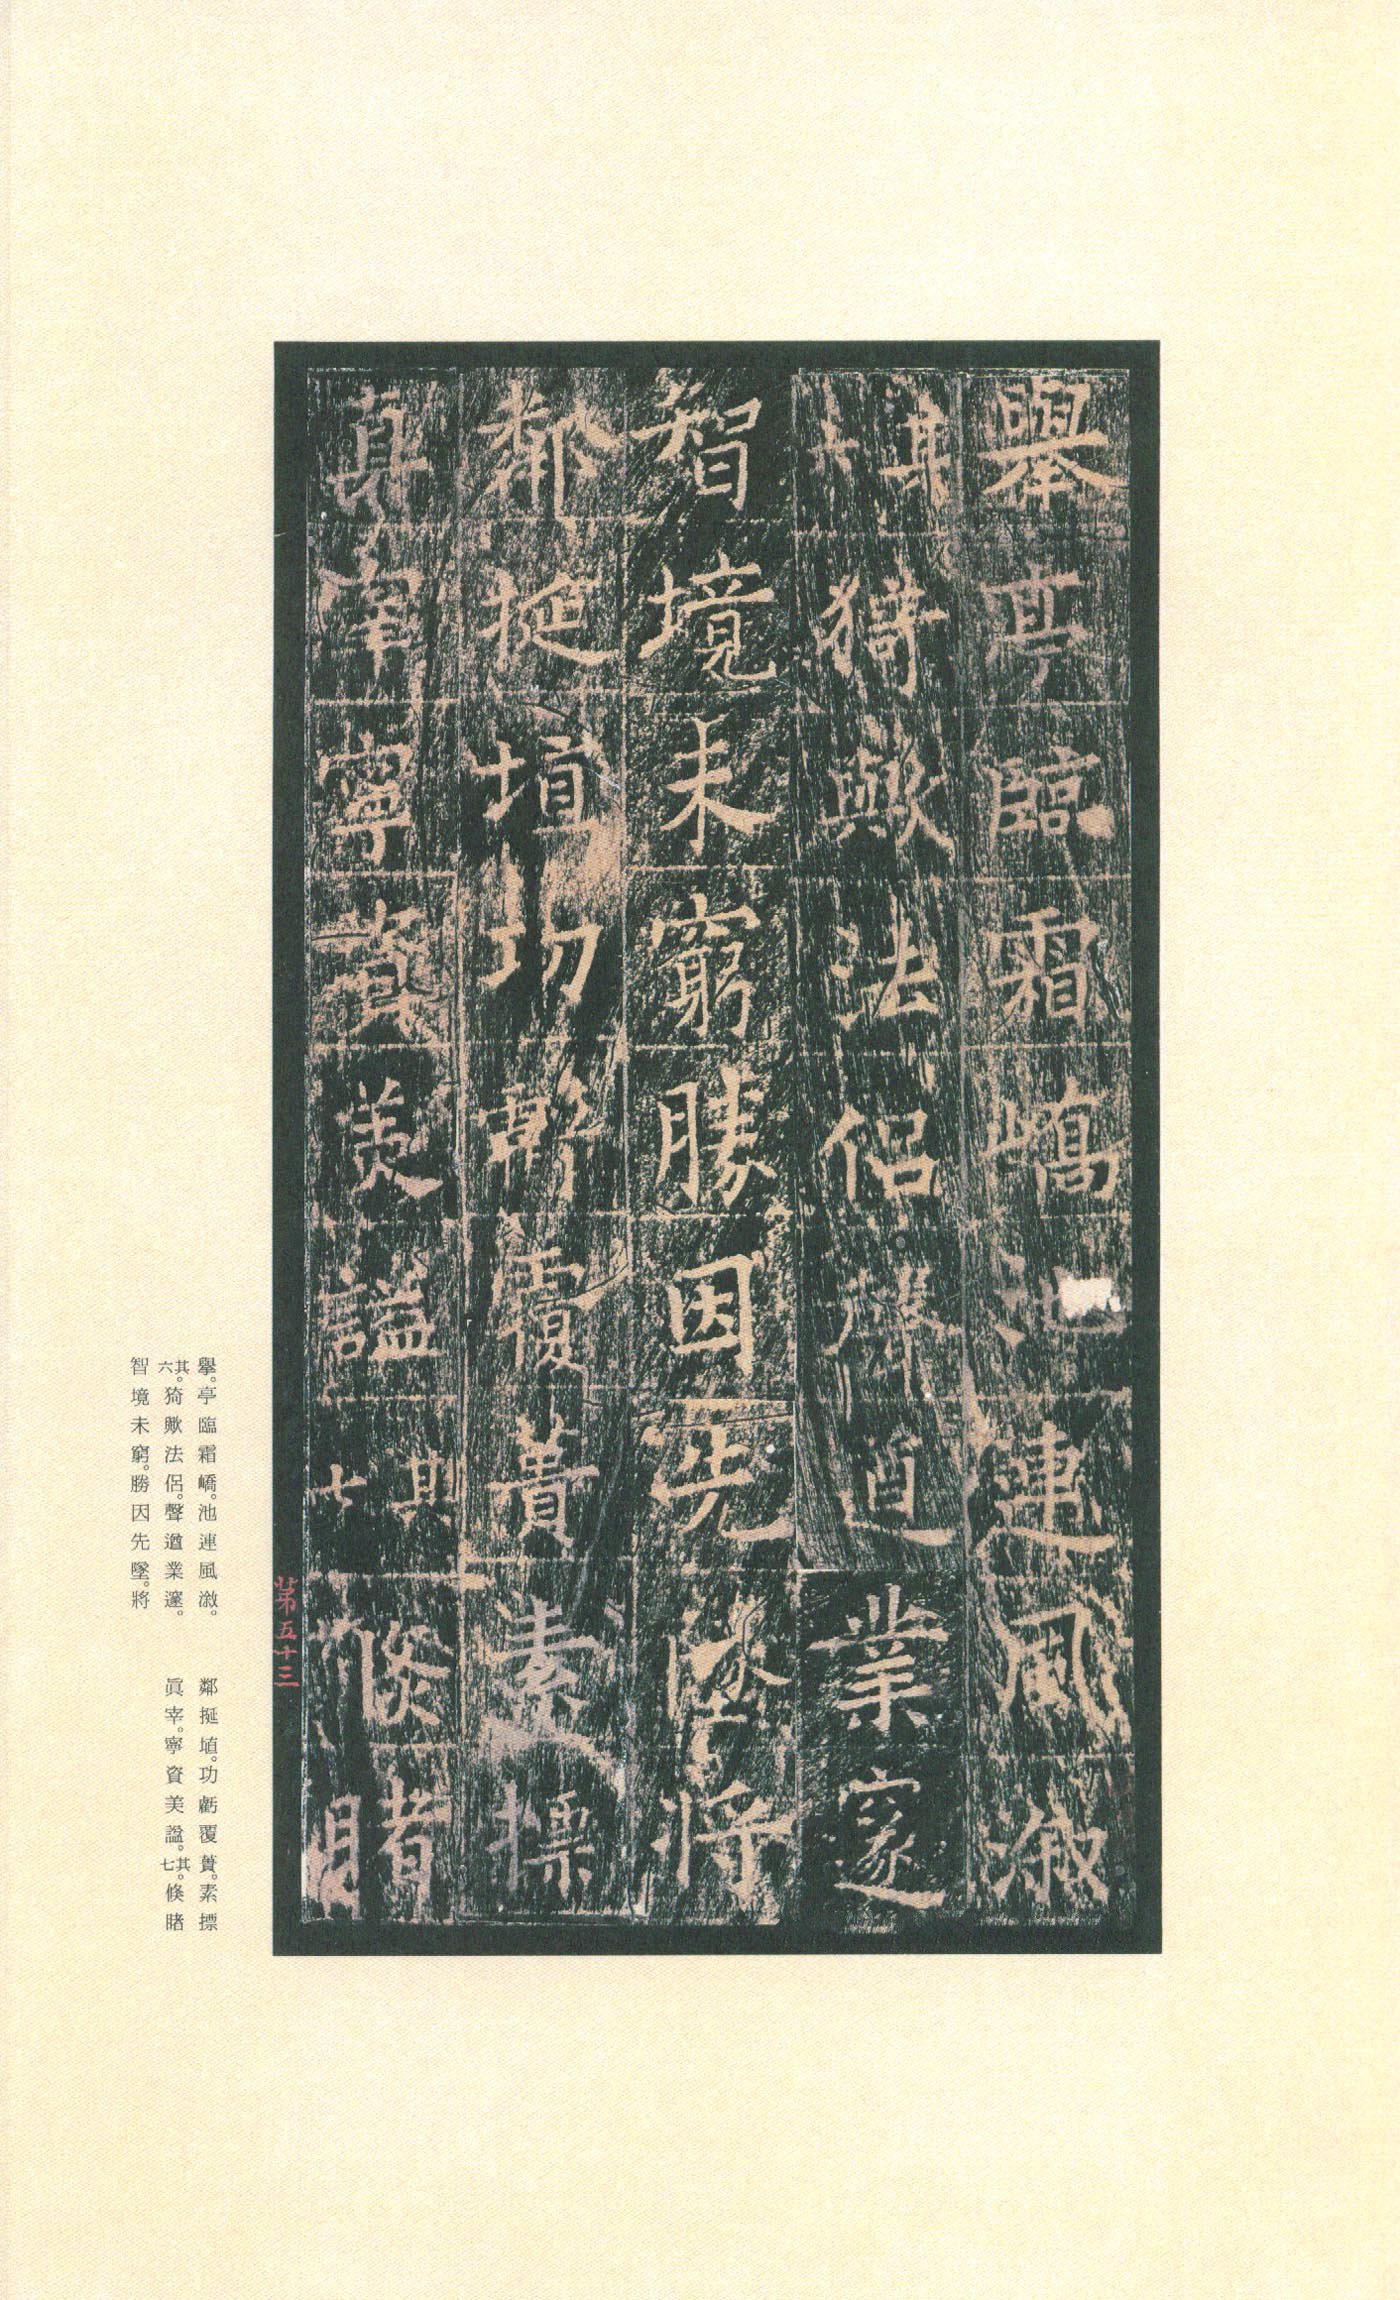 舉亭臨霜嶠池連風漵
其六猗歟法侶聲遒業邃
智境未窮勝因先墜將
鄰挻埴功虧覆蕢素摽
真宰寧資美謚其七倏睹
第五十三
舉。亭臨霜嶠。池連風漵。
其六。猗歟法侶。聲遒業邃。
智境未窮。勝因先墜。將
鄰挻埴。功虧覆蕢。素摽
眞宰。寧資美謚。其七。倏睹